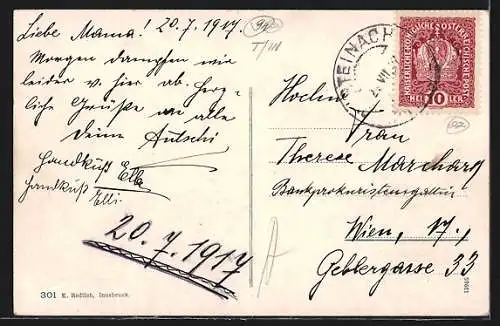 Liebe Mama! 20.7.1917.
Morgen dampfen wir
leider v. hier ab. Herz-
liche Grüße an alle
Deine
Handkuß Ella
Handkuß Elli.
20.7.1917
301 E. Redlich, Innsbruck.
92
T/III
STEINACH
KAISERLICHE KÖNIGLICHE ÖSTERREICHISCHE POST
10
HELLER
92
Hochw.
Frau
Therese Marchart
Bankprokuristensgattin
Wien, IV.,
Geblergasse 33